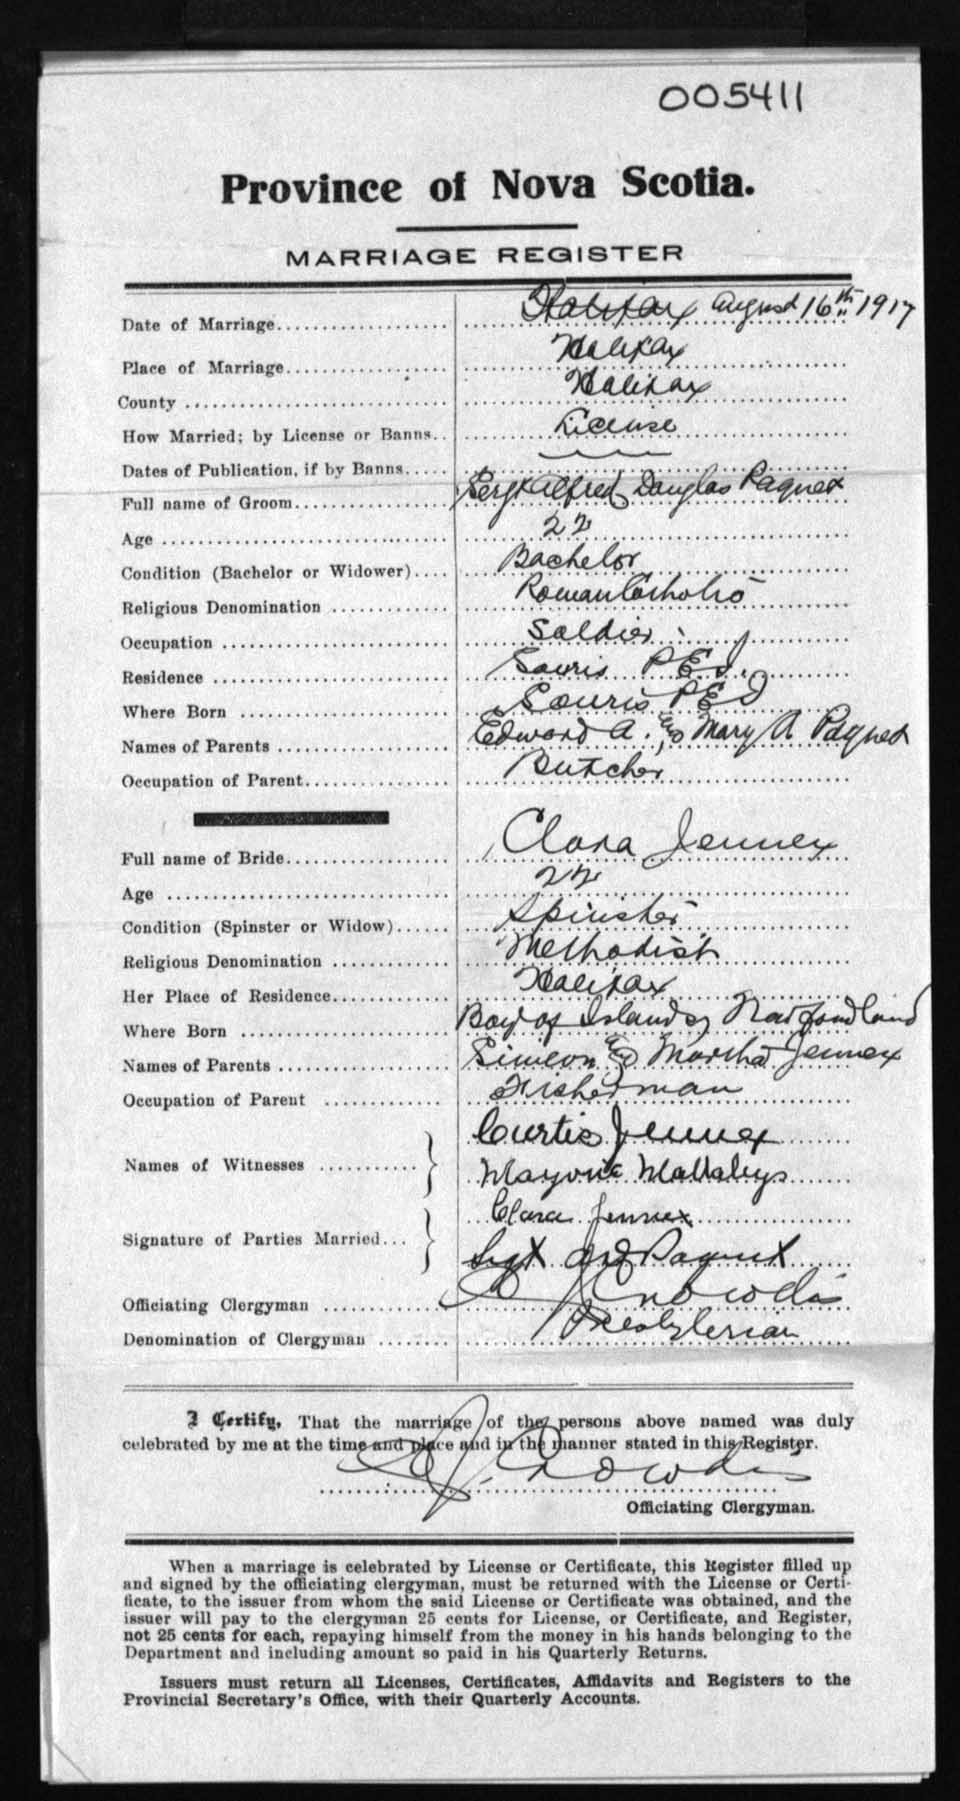 005411
Province of Nova Scotia.
MARRIAGE REGISTER
Date of Marriage Halifax August 16th 1917
Place of Marriage Halifax
County Halifax
How Married; by License or Banns License
Dates of Publication, if by Banns
Full name of Groom Sergt Alfred Douglas Paquet
Age 22
Condition (Bachelor or Widower) Bachelor
Religious Denomination Roman Catholic
Occupation Soldier
Residence Souris P.E.I.
Where Born Souris P E I
Names of Parents Edward A. & Mary A Paquet
Occupation of Parent Butcher
Full name of Bride Clara Jennex
Age 22
Condition (Spinster or Widow) Spinster
Religious Denomination Methodist
Her Place of Residence Halifax
Where Born Bay of Islands Newfoundland
Names of Parents Simeon & Martha Jennex
Occupation of Parent Fisherman
Names of Witnesses Curtis Jennex
Marjorie
Signature of Parties Married Clara Jennex
Sgt Paquet
Officiating Clergyman
Denomination of Clergyman Presbyterian
I Certify, That the marriage of the persons above named was duly
celebrated by me at the time and place and in the manner stated in this Register.
Officiating Clergyman.
When a marriage is celebrated by License or Certificate, this Register filled up
and signed by the officiating clergyman, must be returned with the License or Certi-
ficate, to the issuer from whom the said License or Certificate was obtained, and the
issuer will pay to the clergyman 25 cents for License, or Certificate, and Register,
not 25 cents for each, repaying himself from the money in his hands belonging to the
Department and including amount so paid in his Quarterly Returns.
Issuers must return all Licenses, Certificates, Affidavits and Registers to the
Provincial Secretary's Office, with their Quarterly Accounts.